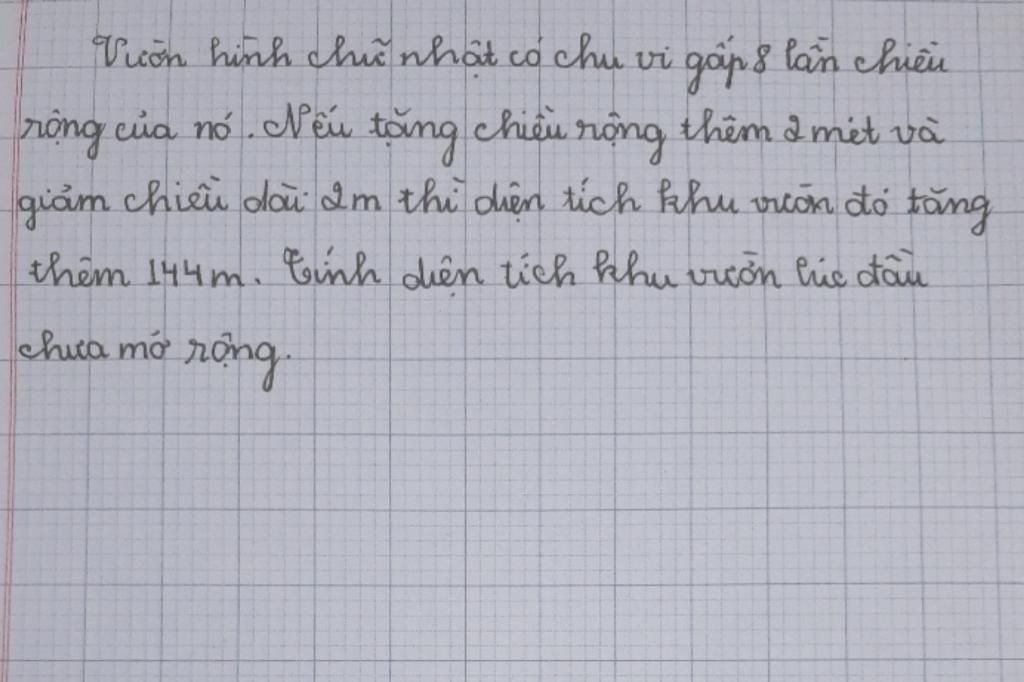 Vườn hình chữ nhật có chu vi gấp 8 lần chiều
rộng của nó. Nếu tăng chiều rộng thêm 2 mét và
giảm chiều dài 2m thì diện tích khu vườn đó tăng
thêm 144m. Tính diện tích khu vườn lúc đầu
chưa mở rộng.